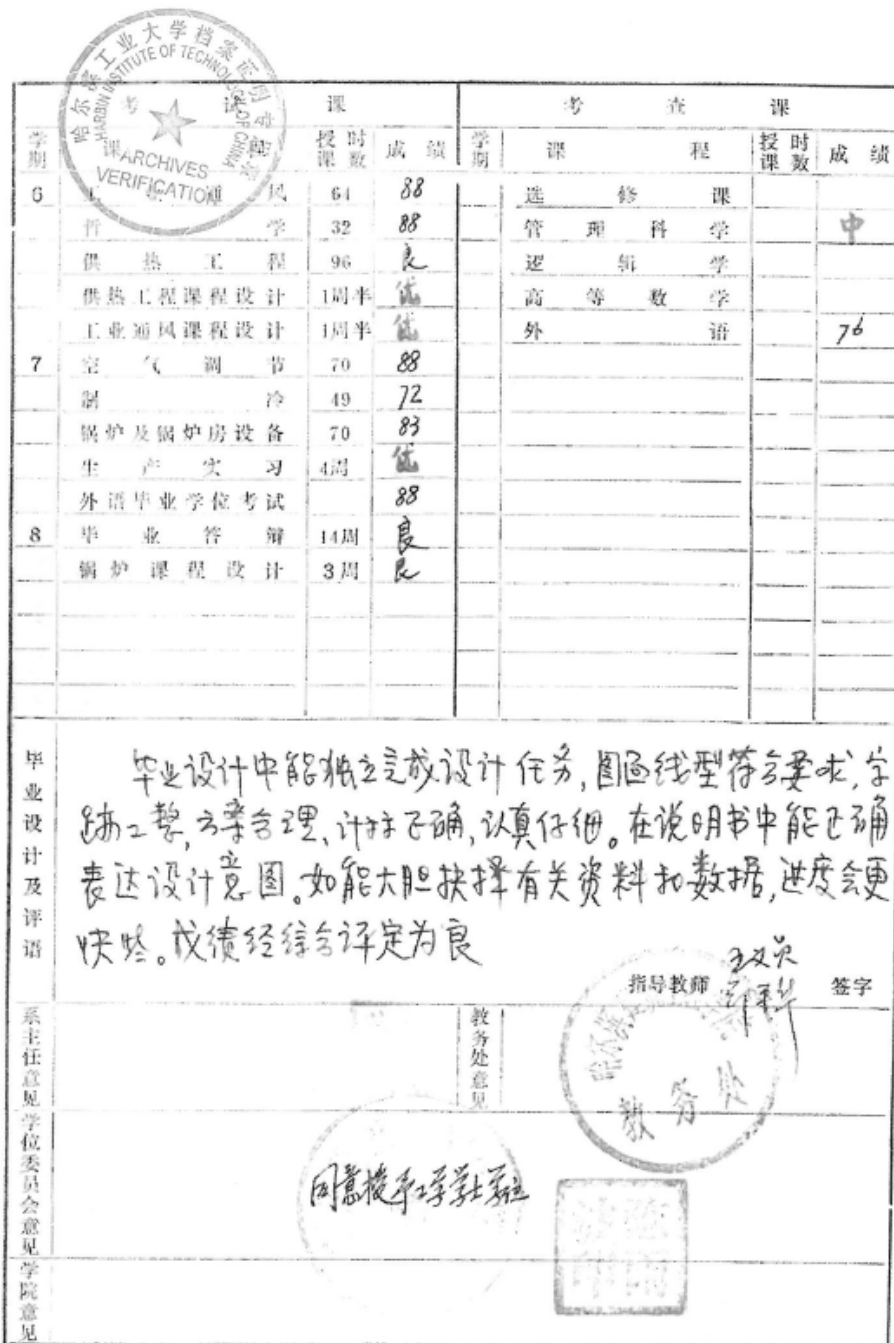 哈尔滨工业大学档案证明专用章
HARBIN INSTITUTE OF TECHNOLOGY OF CHINA
ARCHIVES
VERIFICATION
考试课 考查课
学期 课程 授课时数 成绩 学期 课程 授课时数 成绩
6 工业通风 64 88 选修课
哲学 32 88 管理科学 中
供热工程 96 良 逻辑学
供热工程课程设计 1周半 优 高等数学
工业通风课程设计 1周半 优 外语 76
7 空气调节 70 88
制冷 49 72
锅炉及锅炉房设备 70 83
生产实习 4周 优
外语毕业学位考试 88
8 毕业答辩 14周 良
锅炉课程设计 3周 良
毕业设计及评语
毕业设计中能独立完成设计任务,图面线型符合要求,字
跡工整,方案合理、计算正确,认真仔细。在说明书中能正确
表达设计意图。如能大胆抉择有关资料和数据,进度会更
快些。成绩经综合评定为良
指导教师 签字
系主任意见 教务处意见
哈尔滨
教务处
学位委员会意见
同意授予工学学士学位
学院意见